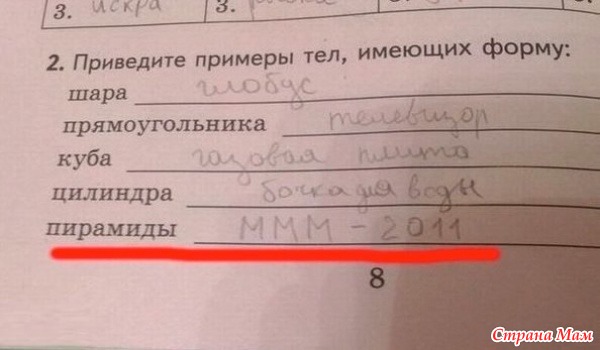 3. искра 3.
2. Приведите примеры тел, имеющих форму:
шара глобус
прямоугольника телевизор
куба газовая плита
цилиндра бочка для воды
пирамиды МММ - 2011
8
Страна Мам